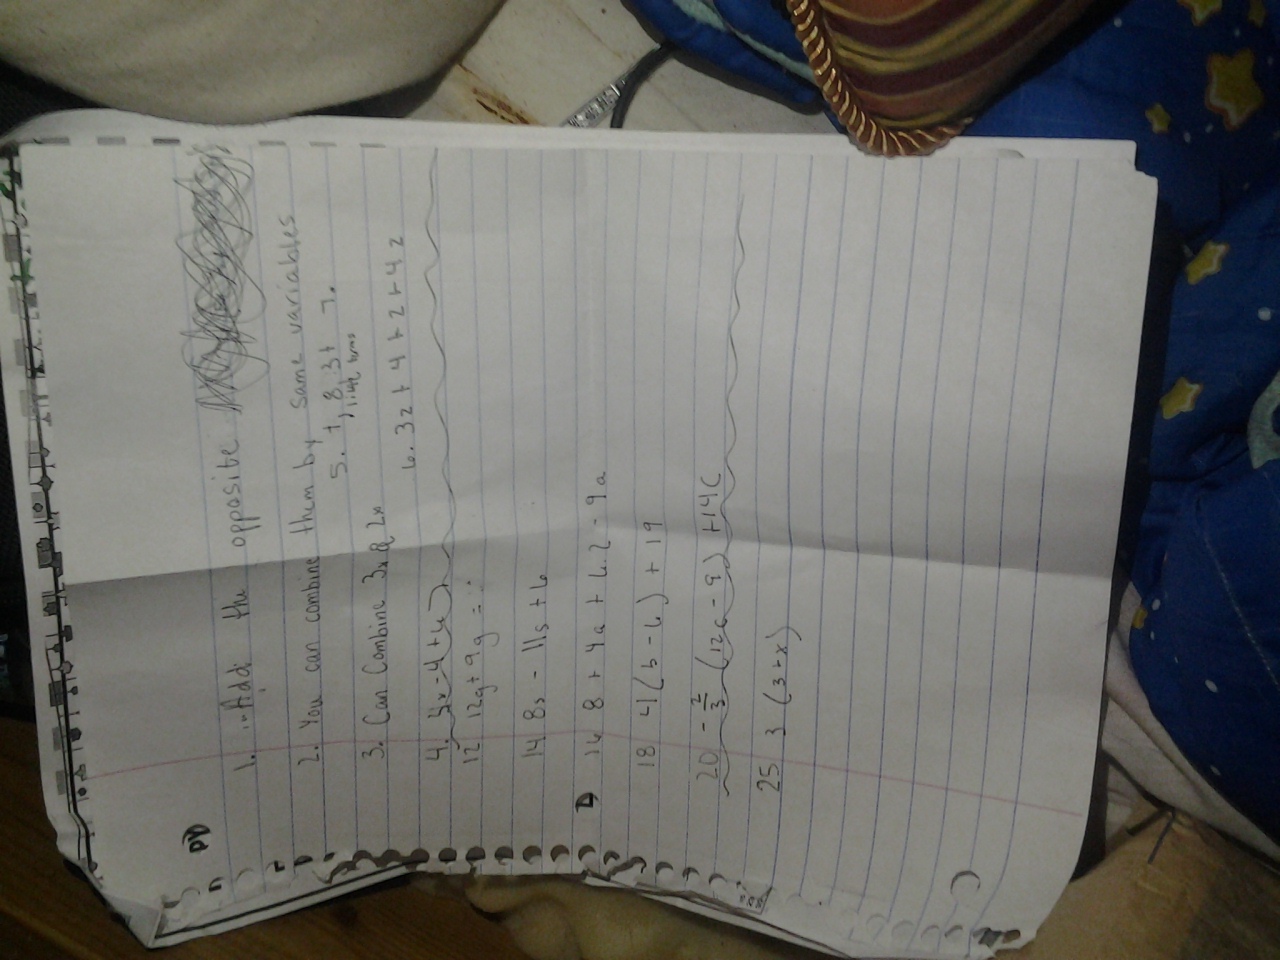 1. Add the opposite
2. You can combine them by same variables
5. t, 8, 3t 7.
like terms
3. Can Combine 3x & 2x
6. 3z + 4 + 2 + 4z
4. 3x - 4 + 4
12 12g + 9g =
14 8s - 11s + 6
16 8 + 4a + 6.2 - 9a
18 4(b - 6) + 19
20 - 2/3 (12c - 9) + 14c
25 3 (3 + x)